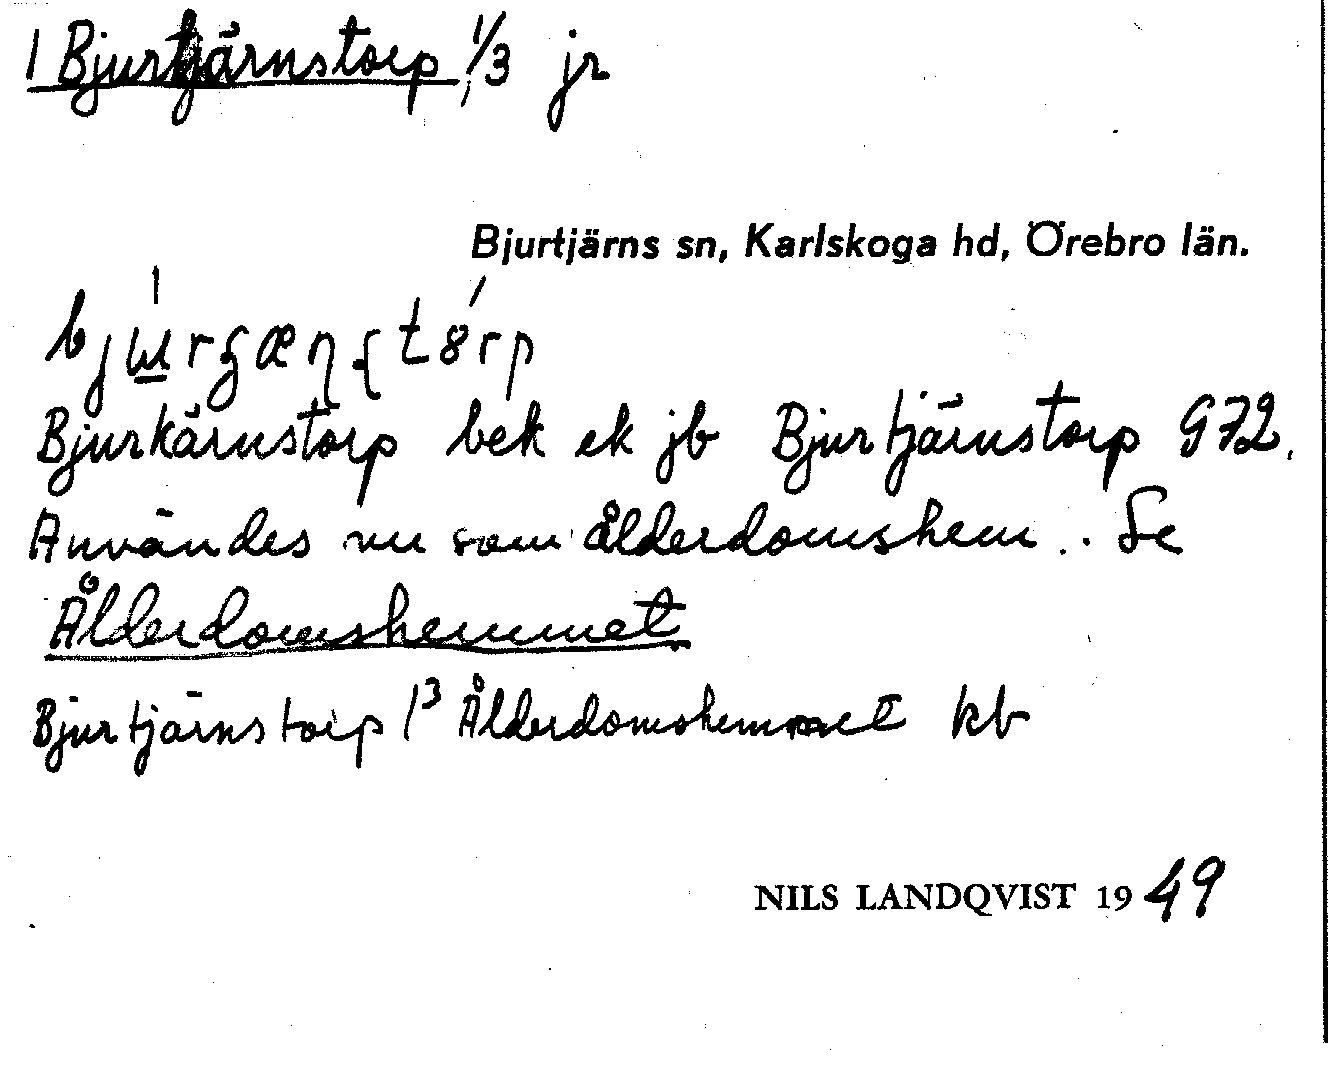 1 Bjurtjärnstorp, 1/3 jr
Bjurtjärns sn, Karlskoga hd, Örebro län.
Bjurkärnstorp bek ek jb Bjurtjärnstorp G72.
Användes nu som ålderdomshem.. Se
Ålderdomshemmet.
Bjurtjärnstorp 1³ Ålderdomshemmet kb
NILS LANDQVIST 1949